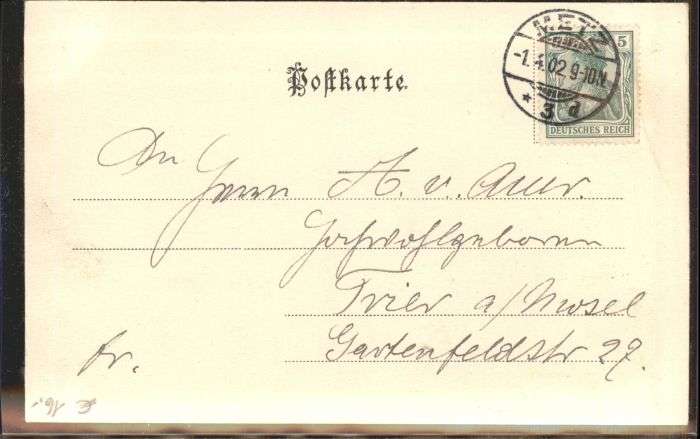 Postkarte.
METZ
-1.4.02.9-10N.
* 3 d
5
DEUTSCHES REICH
An
Herrn A. v. Auer.
Hochwohlgeboren
Trier a/Mosel
Gartenfeldstr 27.
fr.